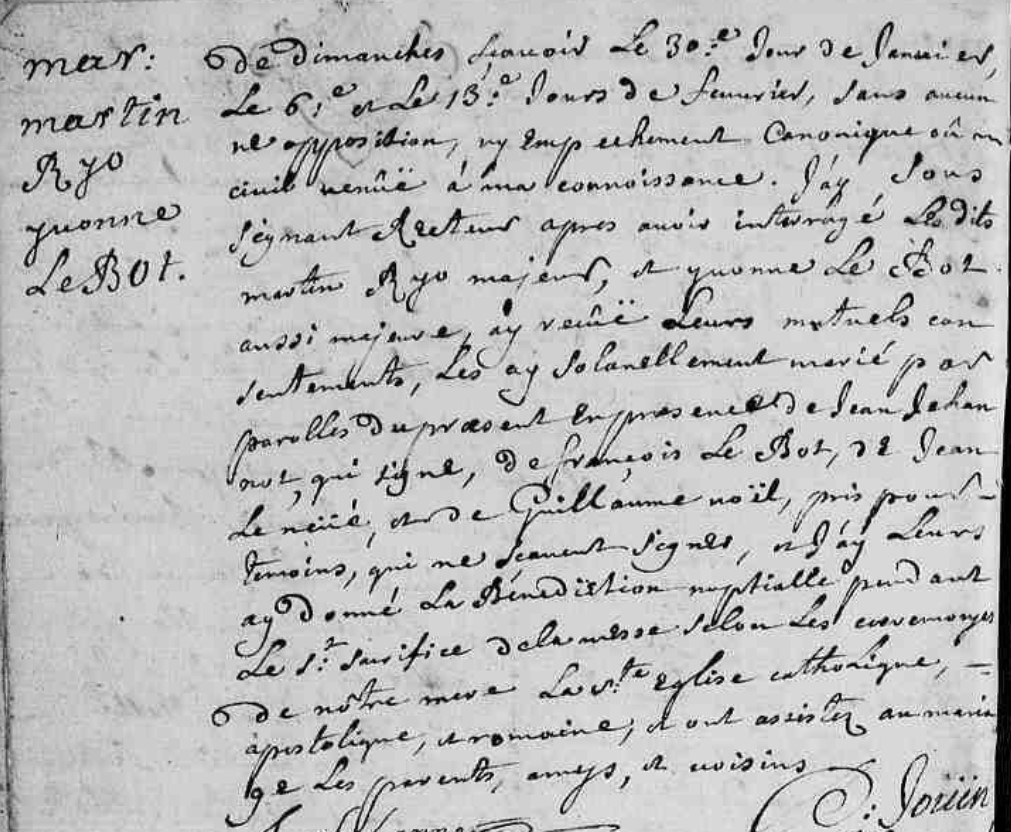 mar:
martin
Ryo
yvonne
Le Bot.
de dimanches scavoir Le 30.e Jour de Janvier,
Le 6.e et Le 13.e Jours de feuvrier, sans aucun
ne opposition, ny Empechement Canonique où
civil venüë à ma connoissance. J'ay Sous
signant Recteur apres avoir interrogé Lesdits
martin Ryo majeur, et yvonne Le Bot
aussi majeure, ay reüe Leurs mutuels con
sentements, Les ay Solanellement marié par
parolles du præsent En præsence de Jean Jehan
not, qui signe, de françois Le Bot, de Jean
Le neüé, et de Guillaume noïl, pris pour -
temoins, qui ne scavent signer, et J'ay Leurs
ay donné La Bénediction nuptialle pendant
Le s.t sacrifice de la messe selon Les ceremonyes
de nôtre mere La s.te Eglise catholique, -
apostolique, et romaine, et ont assistez au maria
ge Les parents, amys, et voisins
: Joüin